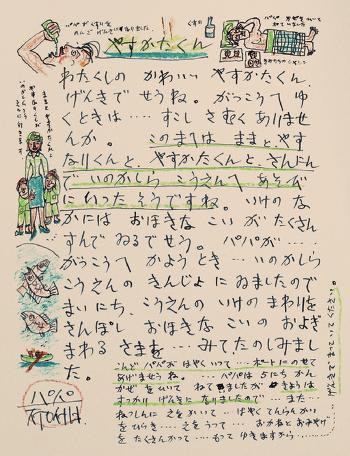 パパがくすりを
のんで げんきになりました。
くすり
やすがたくん
パパが かぜをひいて
ねていました
わたくしの かわいい やすがたくん
げんきで せうね。 がっこうへ ゆ
くときは‥‥ すこし さむく ありませ
んか。 このまへは ままと やす
なりくんと、やすかたくんと、さんにん
で いのかしら こうえんへ あそび
に いった そうですね。 いけの な
かには おほきな こいが たくさん
すんで ゐるでせう。 パパが‥‥
がっこうへ かようとき‥‥ いのかしら
こうえんの きんじょに ゐましたので
まいにち、こうえんの いけの まわりを
さんぽし おほきな こいの およぎ
まわる さまを‥‥ みて たのしみまし
た。
こんど パパが はやく いって‥‥ ボートにのせて
あげませうね。 パパは 5にち かん
かぜを ひいて ねて ましたが きょうは
すっかり げんきに なりましたので‥‥ また‥‥
ねっしんに ゑを かいて‥‥ はやく てんらんかい
を ひらき‥‥ ゑを うって‥‥ おかねと おみやげ
を たくさん かって‥‥ もって ゆきますから‥‥
げんきで まって いて ください。
ままと やすかたくん
パパ